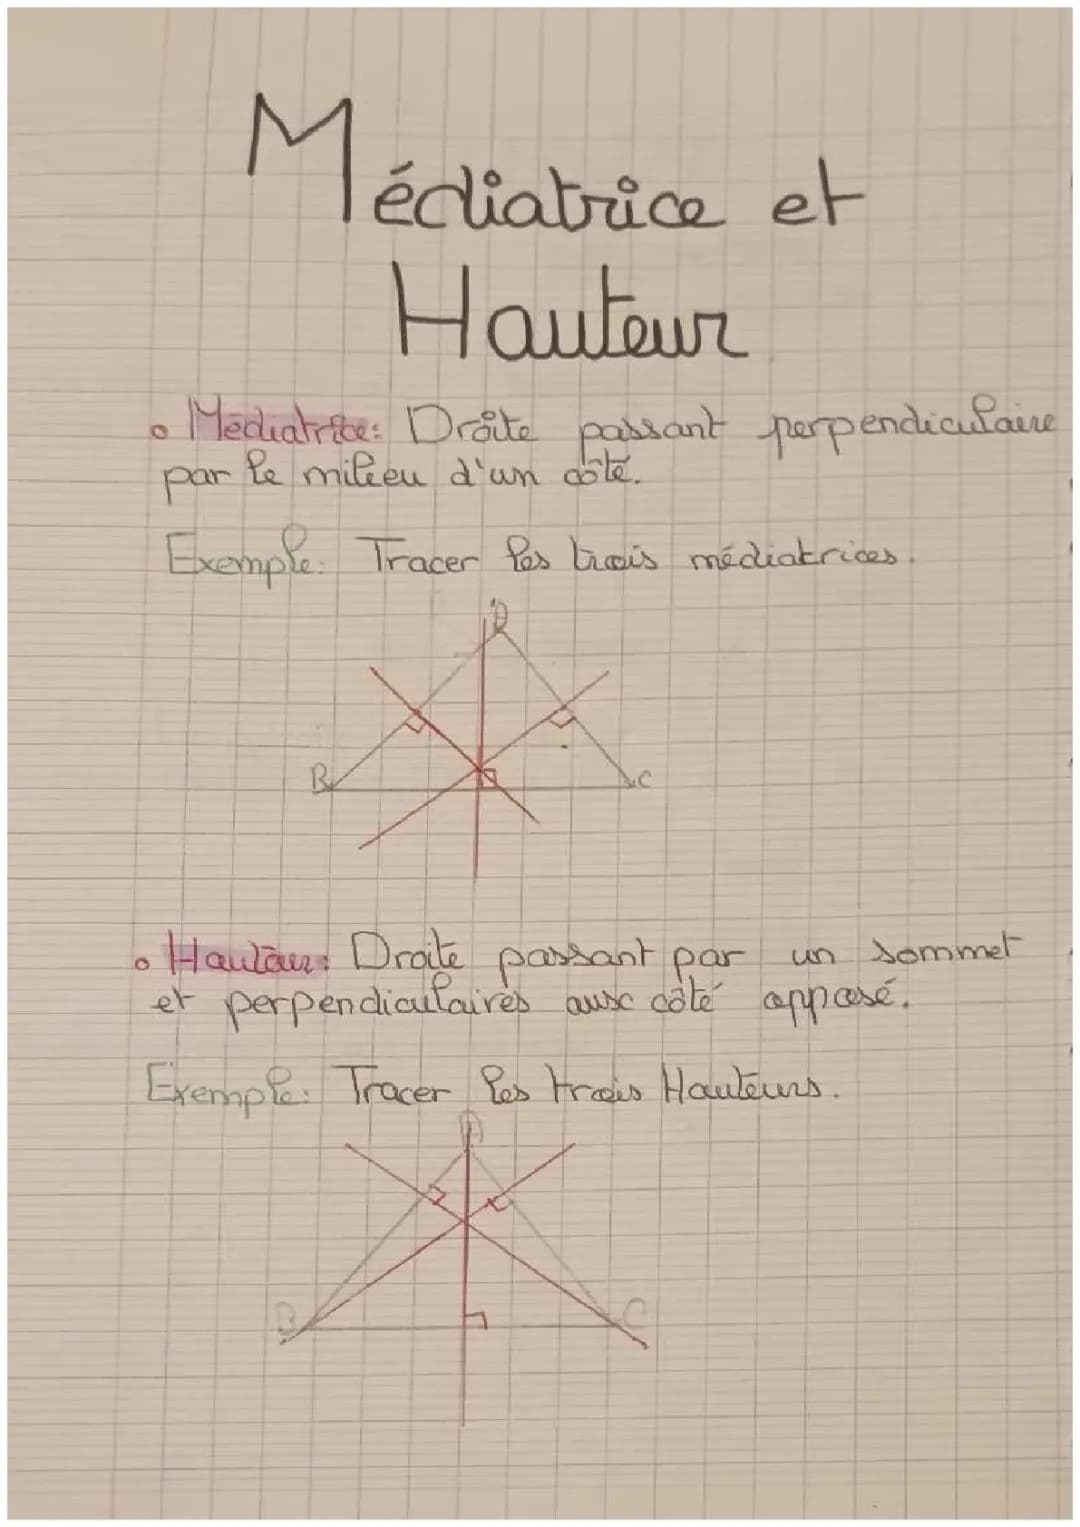 Médiatrice et
Hauteur
• Médiatrice: Droite passant perpendiculaire
par le milieu d'un côté.
Exemple: Tracer les trois médiatrices.
B
C
• Hauteur: Droite passant par un sommet
et perpendiculaires aux côté opposé.
Exemple: Tracer les trois Hauteurs.
C